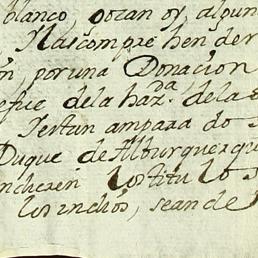 blanco, gozan oy, algun
, Nascompre hen der
n, por una Donación
de la haz.da de la
Iestan ampara do
Duque de Alburquerqu
los titu lo
los Indios, sean de